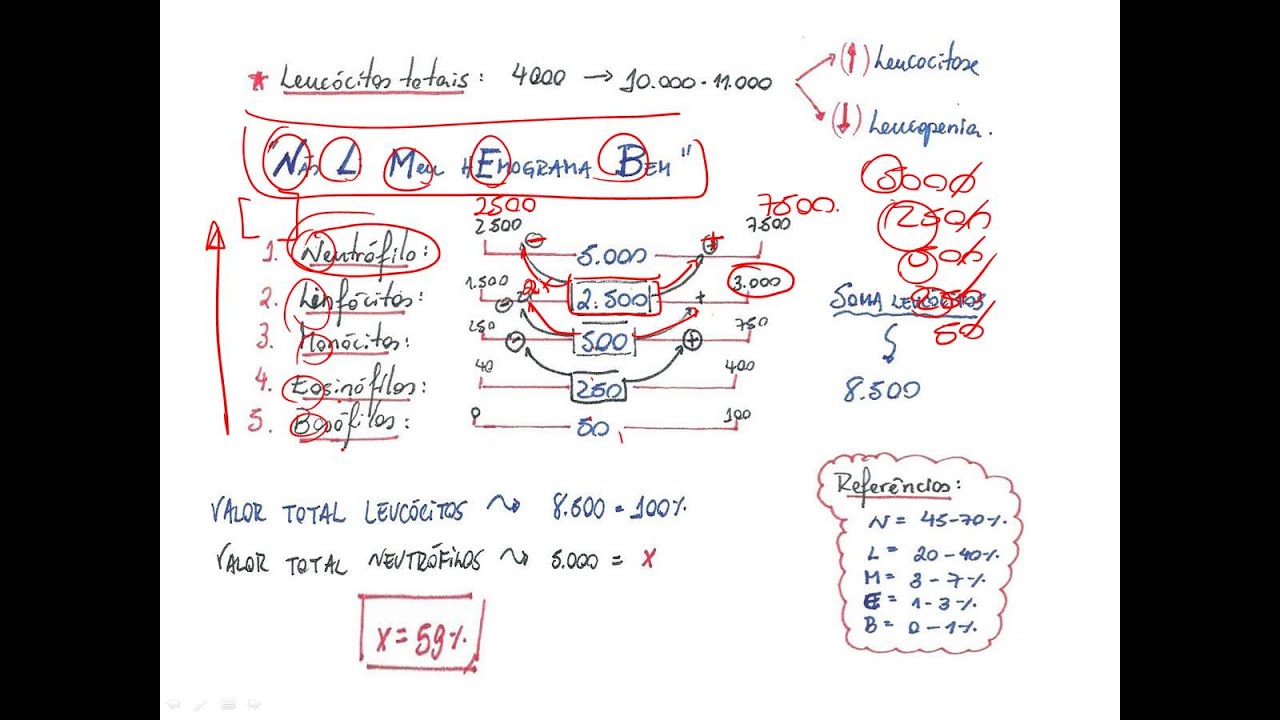 * Leucócitos totais: 4000 → 10.000-11.000
(↑) Leucocitose
(↓) Leucopenia.
"Não L Meu HEMOGRAMA BEM"
5000
2500
500
250
50
2500 7500.
2.500 7.500
1. Neutrófilo: - 5.000 +
1.500 3.000
2. Linfócitos: - 2.500 +
250 750
3. Monócitos: - 500 +
40 400
4. Eosinófilos: 250
0 100
5. Basófilos: 50
SOMA LEUCÓCITOS
8.500
VALOR TOTAL LEUCÓCITOS ~> 8.500 = 100%
VALOR TOTAL NEUTRÓFILOS ~> 5.000 = X
X = 59%
Referências:
N = 45-70%
L = 20-40%
M = 3-7%
E = 1-3%
B = 0-1%